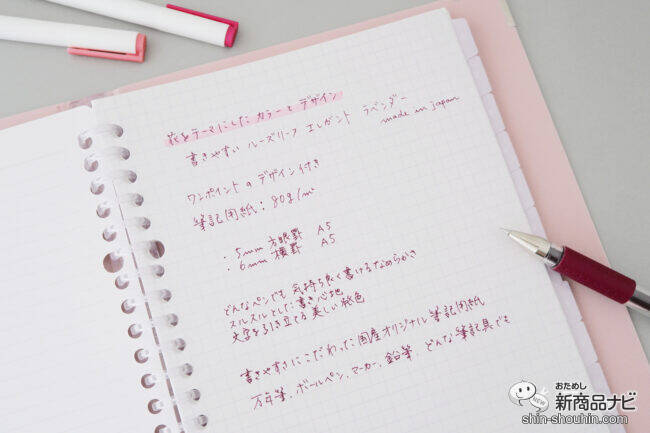 花をテーマにした カラーと デザイン
書きやすい ルーズリーフ エレガント ラベンダー
made in japan
ワンポイントのデザイン付き
筆記用紙：80g/m²
・5mm 方眼罫 A5
・6mm 横罫 A5
どんなペンでも 気持ち良く書けるなめらかさ
スルスルとした書き心地
文字を引き立てる美しい紙色
書きやすさにこだわった国産オリジナル筆記用紙
万年筆、ボールペン、マーカー、鉛筆、どんな筆記具でも
おためし
新商品ナビ
NEW
shin-shouhin.com